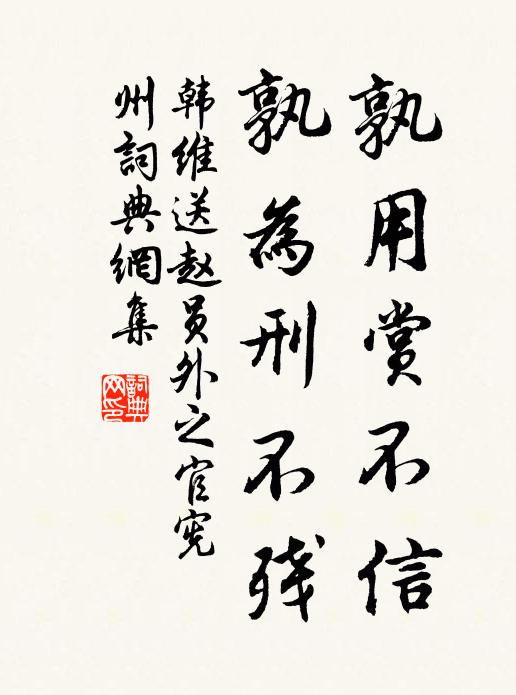 孰用賞不信
孰為刑不残
韩維送赵員外之官兖
州詞典網集
詞典
网印